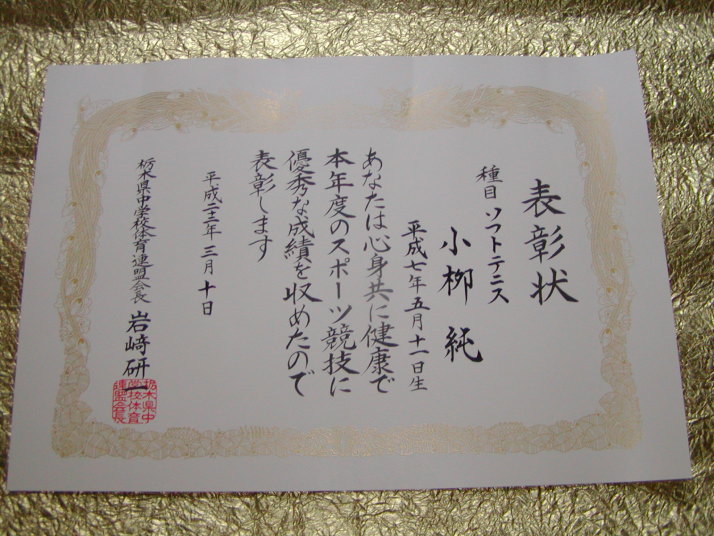 表彰状
種目 ソフトテニス
小柳 純
平成七年五月十一日生
あなたは心身共に健康で
本年度のスポーツ競技に
優秀な成績を収めたので
表彰します
平成二十二年三月十日
栃木県中学校体育連盟会長 岩﨑研一
栃木県中
学校体育
連盟会長